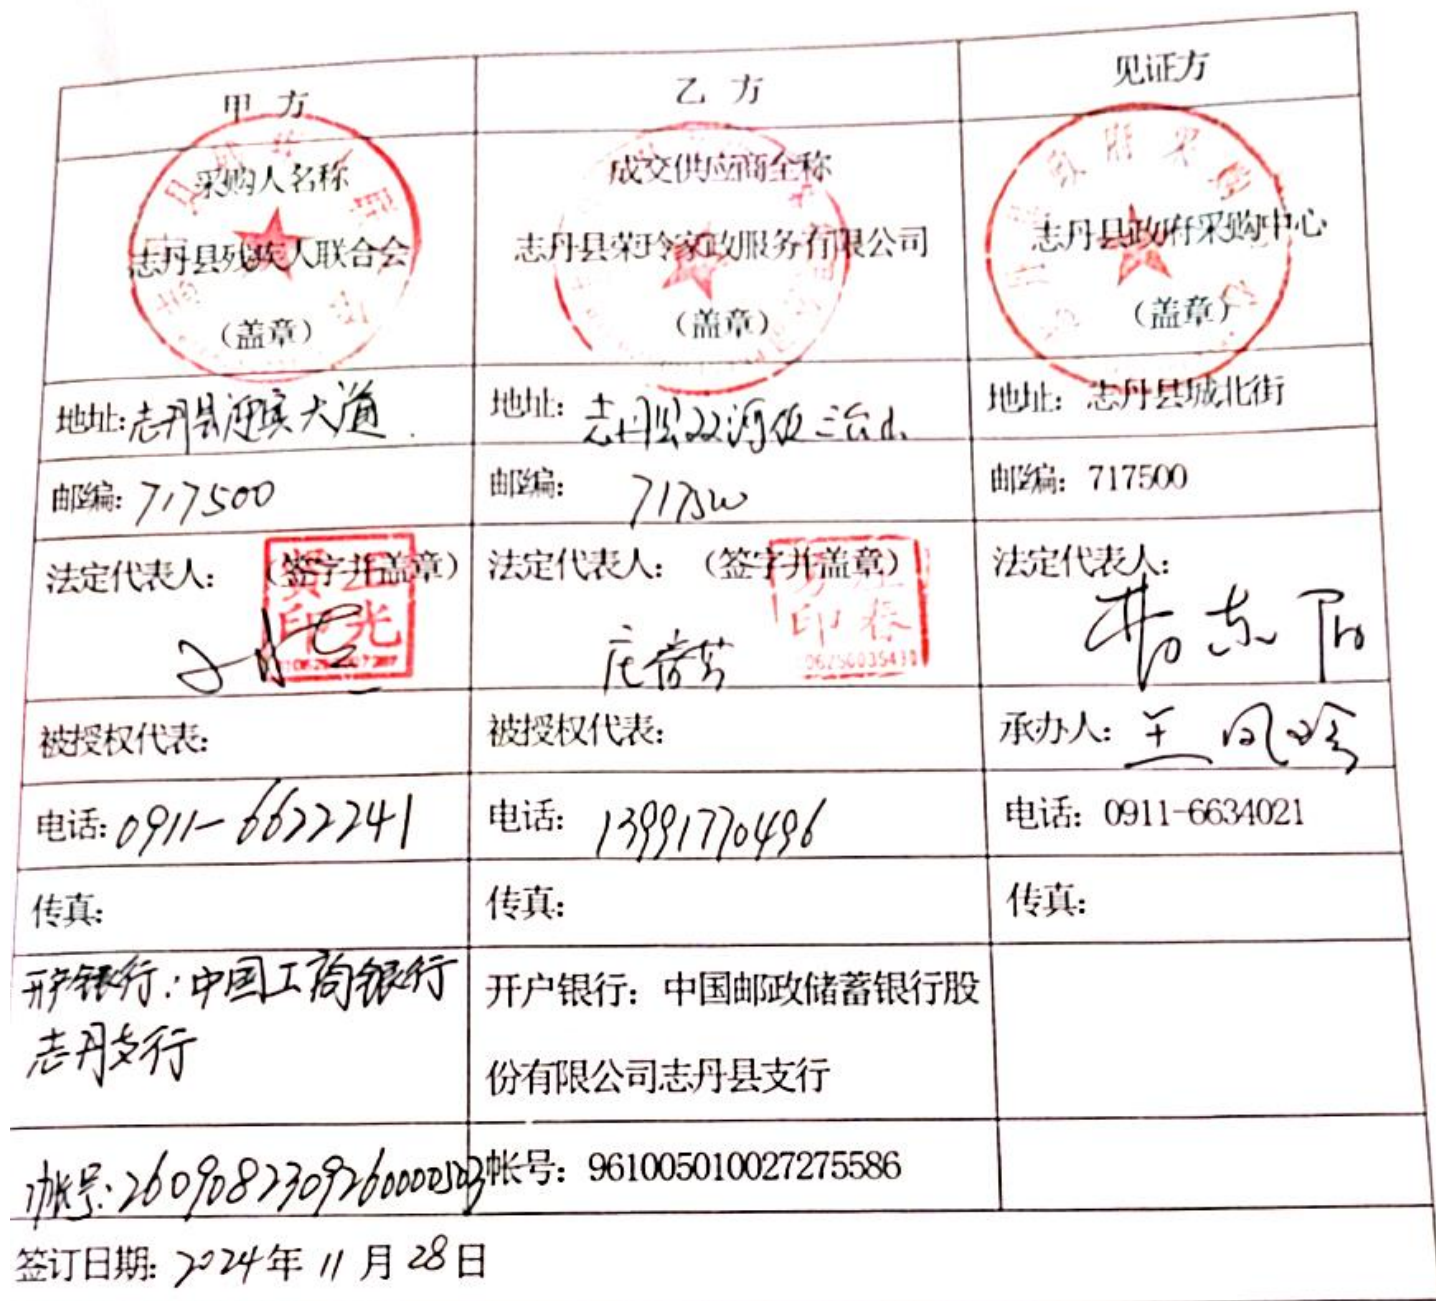 甲 方
乙 方
见证方
采购人名称
志丹县残疾人联合会
（盖章）
成交供应商全称
志丹县荣玲家政服务有限公司
（盖章）
志丹县政府采购中心
（盖章）
地址:志丹县迎宾大道
地址:
地址: 志丹县城北街
邮编: 717500
邮编: 717500
邮编: 717500
法定代表人: （签字并盖章）
法定代表人: （签字并盖章）
法定代表人:
被授权代表:
被授权代表:
承办人: 王凤玲
电话: 0911-6622241
电话: 13991770496
电话: 0911-6634021
传真:
传真:
传真:
开户银行: 中国工商银行
志丹支行
开户银行: 中国邮政储蓄银行股
份有限公司志丹县支行
帐号: 2609082309260000503
帐号: 961005010027275586
签订日期: 2024年 11 月 28日